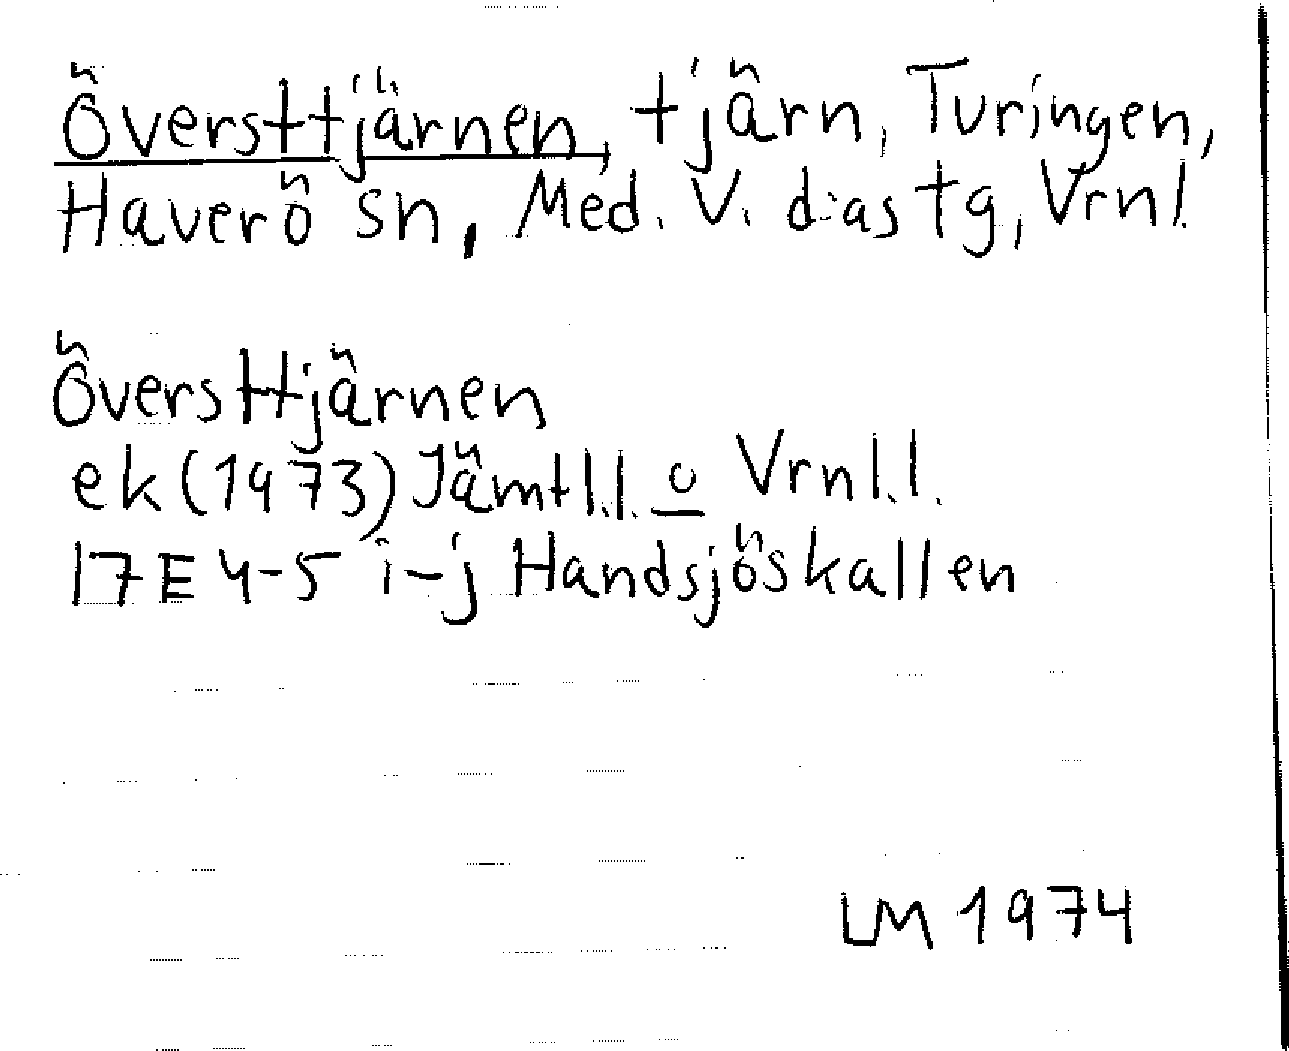 Översttjärnen, tjärn, Turingen,
Haverö sn, Med. V. d:as tg, Vrnl.
Översttjärnen
ek (1973) Jämtl.l. o Vrnl.l.
17E 4-5 i-j Handsjöskallen
LM 1974